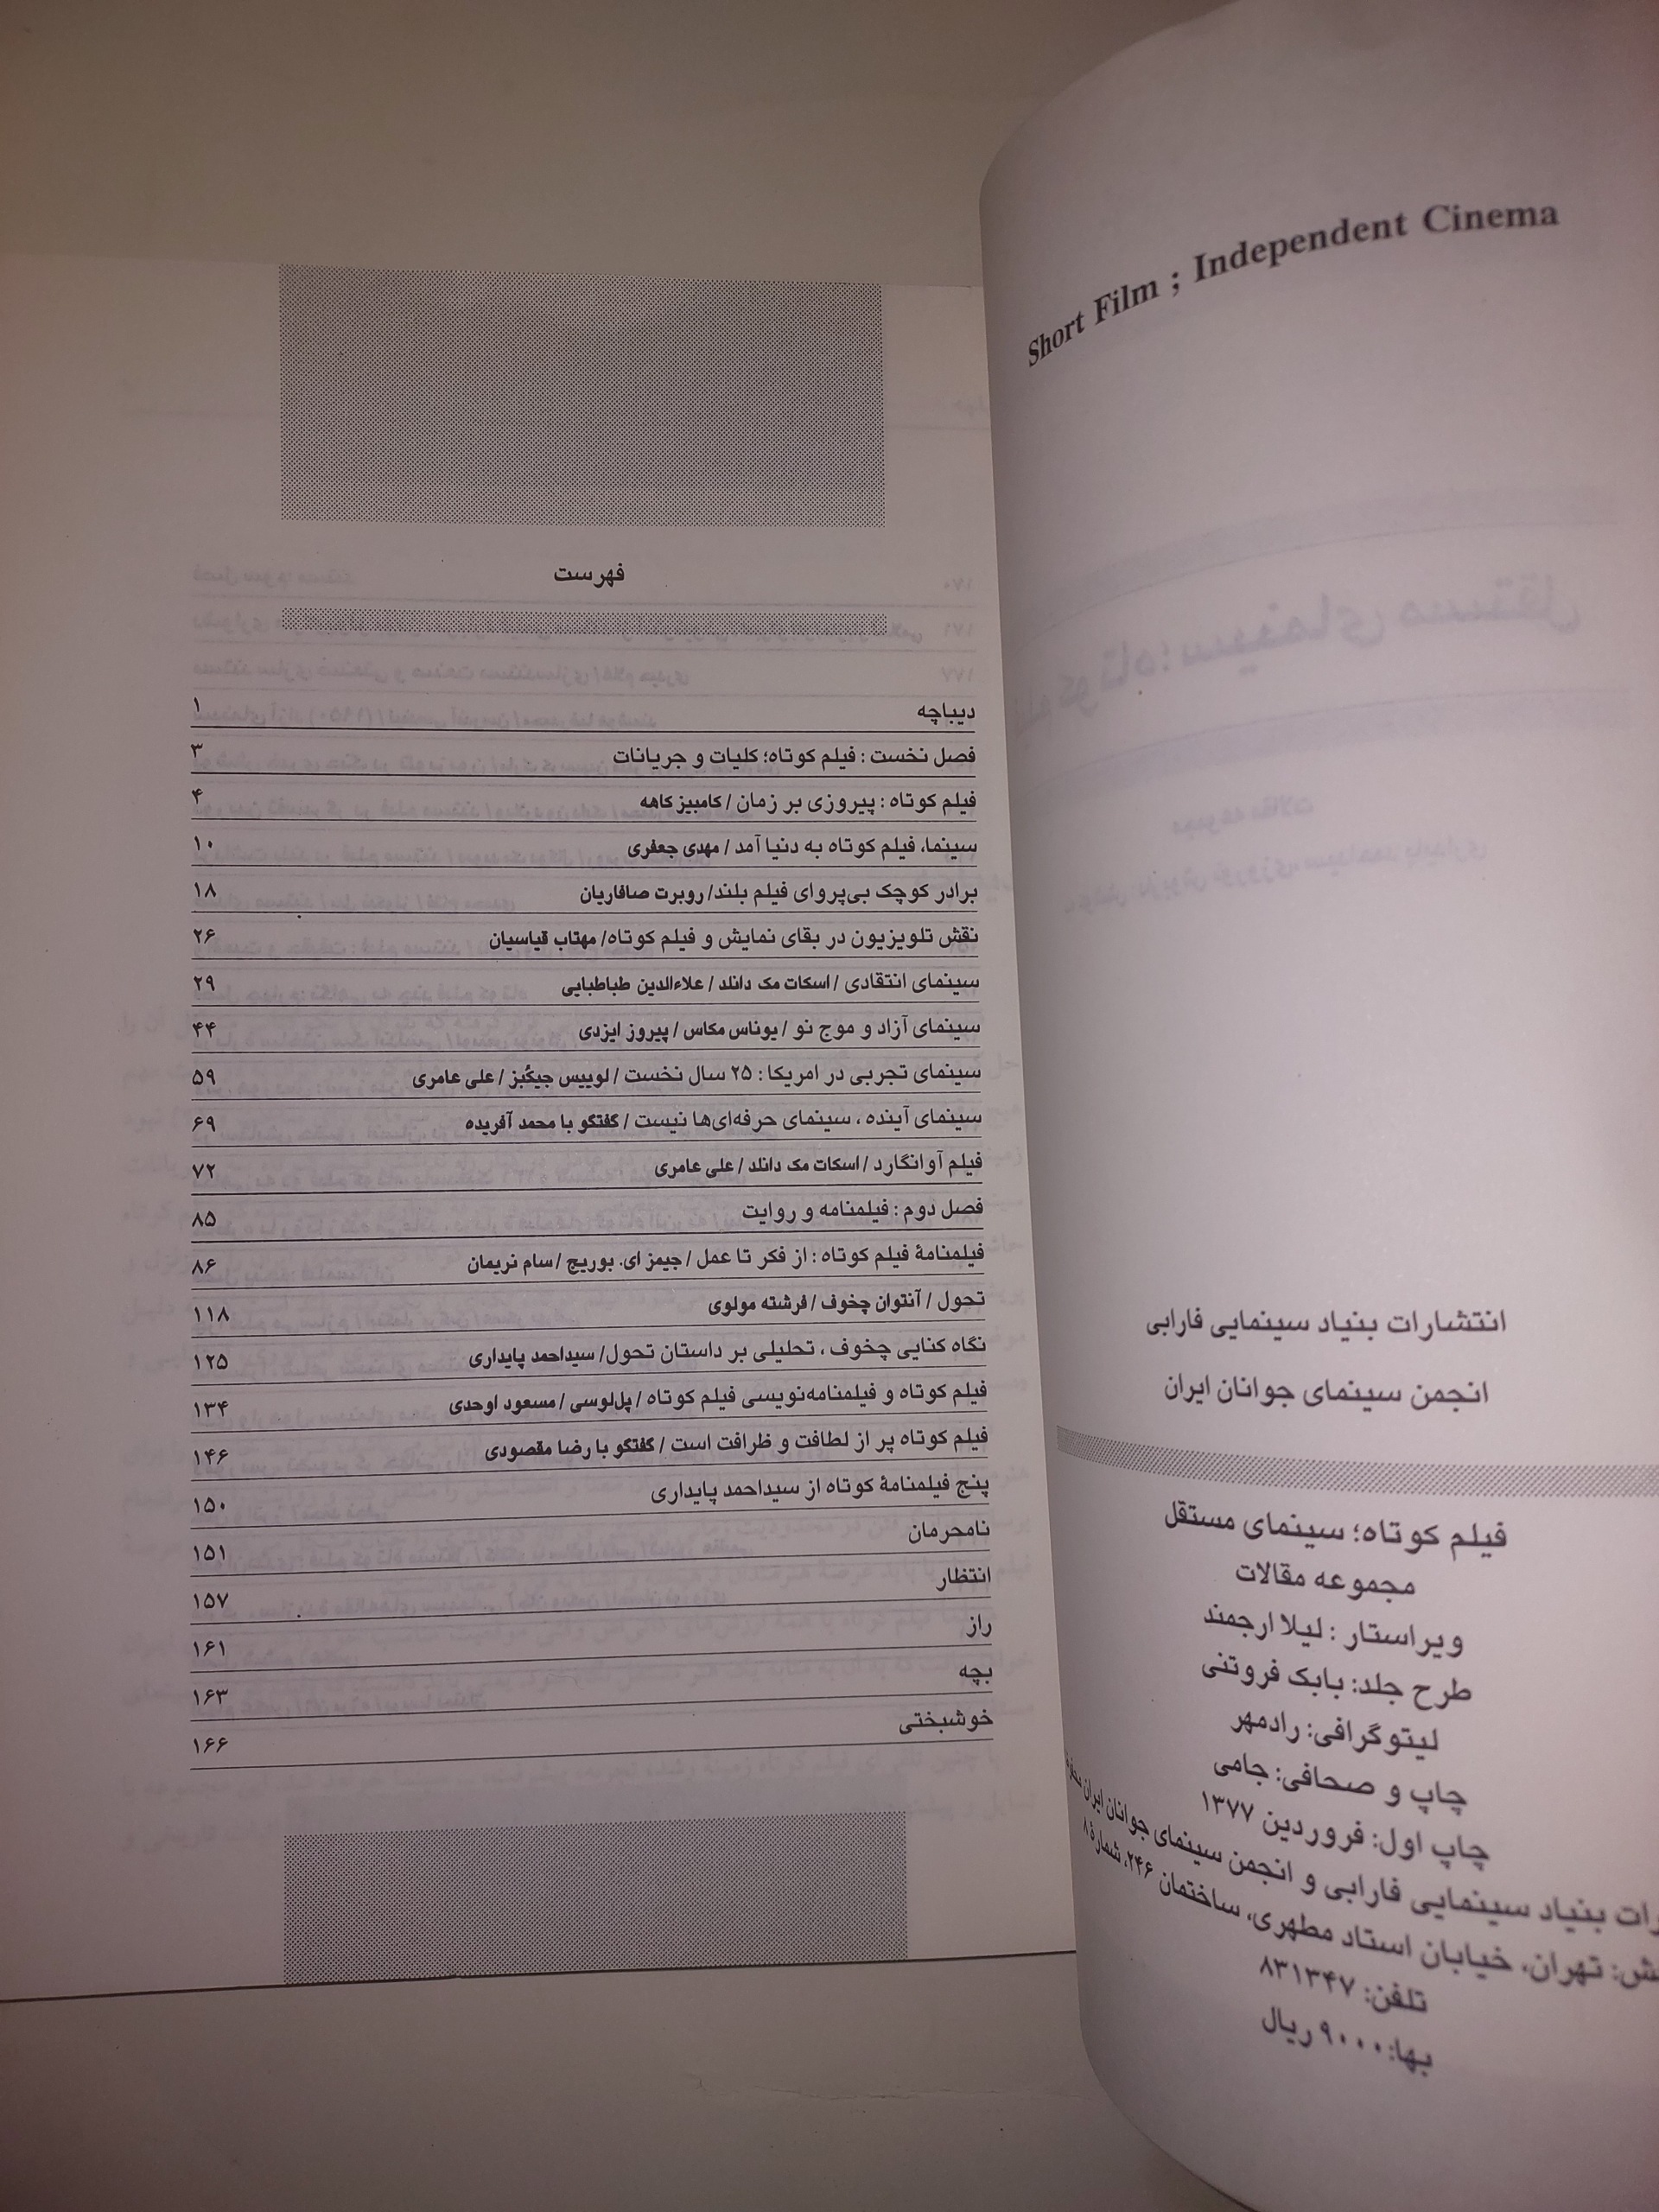 Short Film ; Independent Cinema
انتشارات بنیاد سینمایی فارابی
انجمن سینمای جوانان ایران
فیلم کوتاه؛ سینمای مستقل
مجموعه مقالات
ویراستار : لیلا ارجمند
طرح جلد: بابک فروتنی
لیتوگرافی: رادمهر
چاپ و صحافی: جامی
چاپ اول: فروردین ۱۳۷۷
بنیاد سینمایی فارابی و انجمن سینمای جوانان ایران
تهران، خیابان استاد مطهری، ساختمان ۲۴۶، شمارهٔ ۸
تلفن: ۸۳۱۳۴۷
بها: ۹۰۰۰ ریال
فهرست
دیباچه ۱
فصل نخست : فیلم کوتاه؛ کلیات و جریانات ۳
فیلم کوتاه : پیروزی بر زمان / کامبیز کاهه ۴
سینما، فیلم کوتاه به دنیا آمد / مهدی جعفری ۱۰
برادر کوچک بی‌پروای فیلم بلند/ روبرت صافاریان ۱۸
نقش تلویزیون در بقای نمایش و فیلم کوتاه/ مهتاب قیاسیان ۲۶
سینمای انتقادی / اسکات مک دانلد / علاءالدین طباطبایی ۲۹
سینمای آزاد و موج نو / یوناس مکاس / پیروز ایزدی ۴۴
سینمای تجربی در امریکا : ۲۵ سال نخست / لوییس جیکُبز / علی عامری ۵۹
سینمای آینده ، سینمای حرفه‌ای‌ها نیست / گفتگو با محمد آفریده ۶۹
فیلم آوانگارد / اسکات مک دانلد / علی عامری ۷۲
فصل دوم : فیلمنامه و روایت ۸۵
فیلمنامهٔ فیلم کوتاه : از فکر تا عمل / جیمز ای. بوریج / سام نریمان ۸۶
تحول / آنتوان چخوف / فرشته مولوی ۱۱۸
نگاه کنایی چخوف ، تحلیلی بر داستان تحول/ سیداحمد پایداری ۱۲۵
فیلم کوتاه و فیلمنامه‌نویسی فیلم کوتاه / پل‌لوسی / مسعود اوحدی ۱۳۴
فیلم کوتاه پر از لطافت و ظرافت است / گفتگو با رضا مقصودی ۱۴۶
پنج فیلمنامهٔ کوتاه از سیداحمد پایداری ۱۵۰
نامحرمان ۱۵۱
انتظار ۱۵۷
راز ۱۶۱
بچه ۱۶۳
خوشبختی ۱۶۶